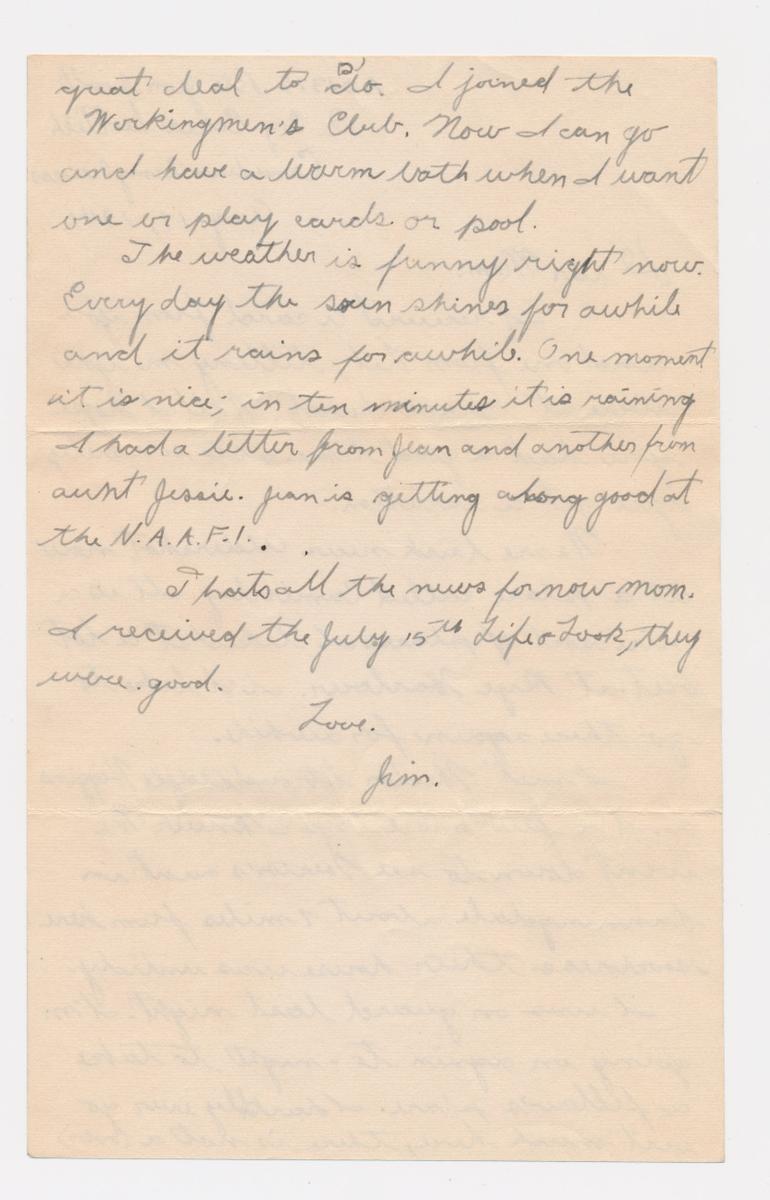 great deal to do. I joined the
Workingmen's Club. Now I can go
and have a warm bath when I want
one or play cards or pool.
The weather is funny right now.
Every day the sun shines for awhile
and it rains for awhile. One moment
it is nice; in ten minutes it is raining
I had a letter from Jean and another from
aunt Jessie. Jean is getting along good at
the N.A.A.F.I.
Thats all the news for now mom.
I received the July 15th Life & Look, they
were good.
Love.
Jim.